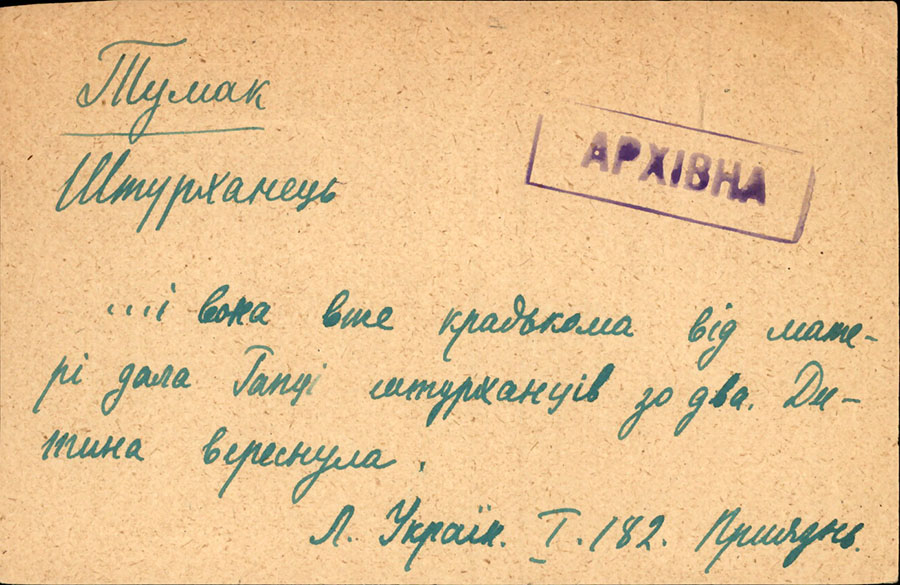 Тумак
АРХІВНА
Штурханець
...і вона вже крадькома від мате-
рі дала Гапці штурханців зо два. Ди-
тина вереснула.
Л. Україн. I. 182. Приязнь.